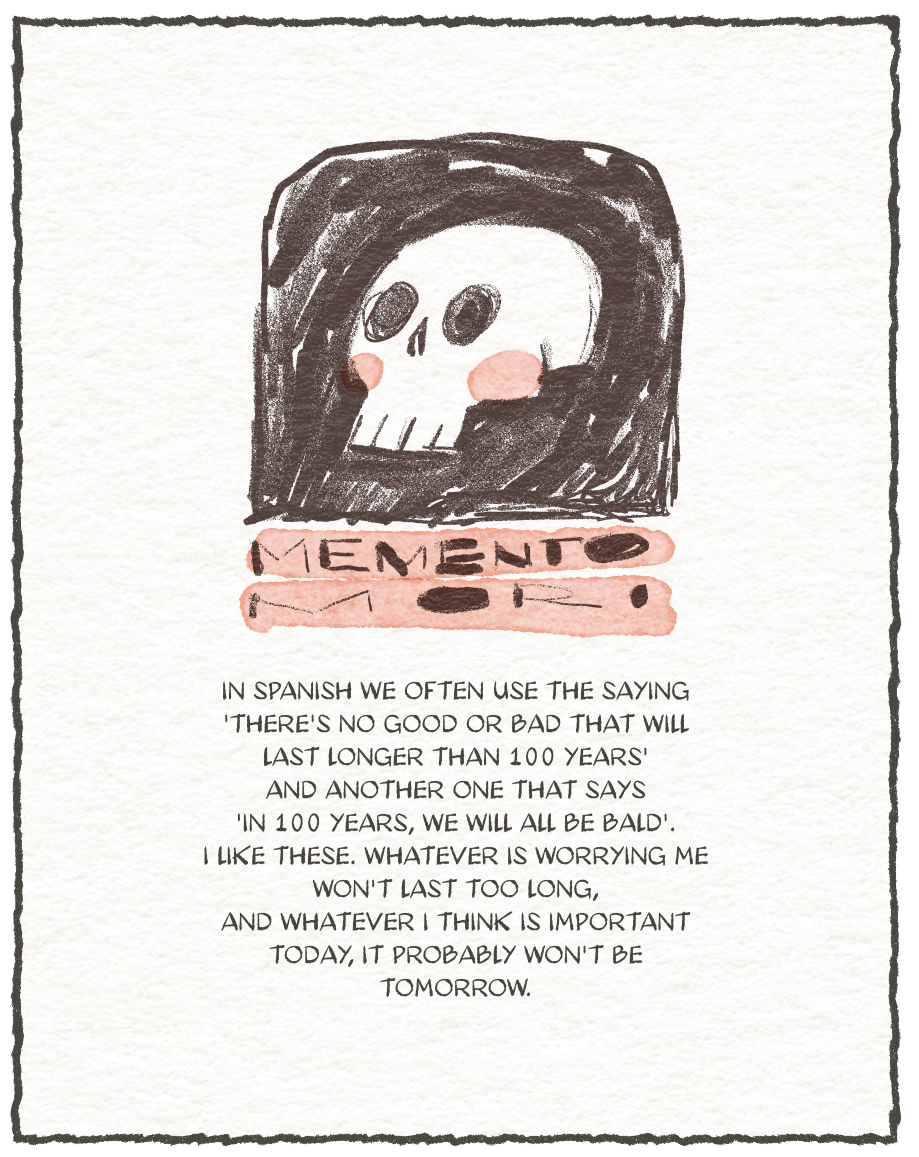 MEMENTO
MORI
IN SPANISH WE OFTEN USE THE SAYING
'THERE'S NO GOOD OR BAD THAT WILL
LAST LONGER THAN 100 YEARS'
AND ANOTHER ONE THAT SAYS
'IN 100 YEARS, WE WILL ALL BE BALD'.
I LIKE THESE. WHATEVER IS WORRYING ME
WON'T LAST TOO LONG,
AND WHATEVER I THINK IS IMPORTANT
TODAY, IT PROBABLY WON'T BE
TOMORROW.